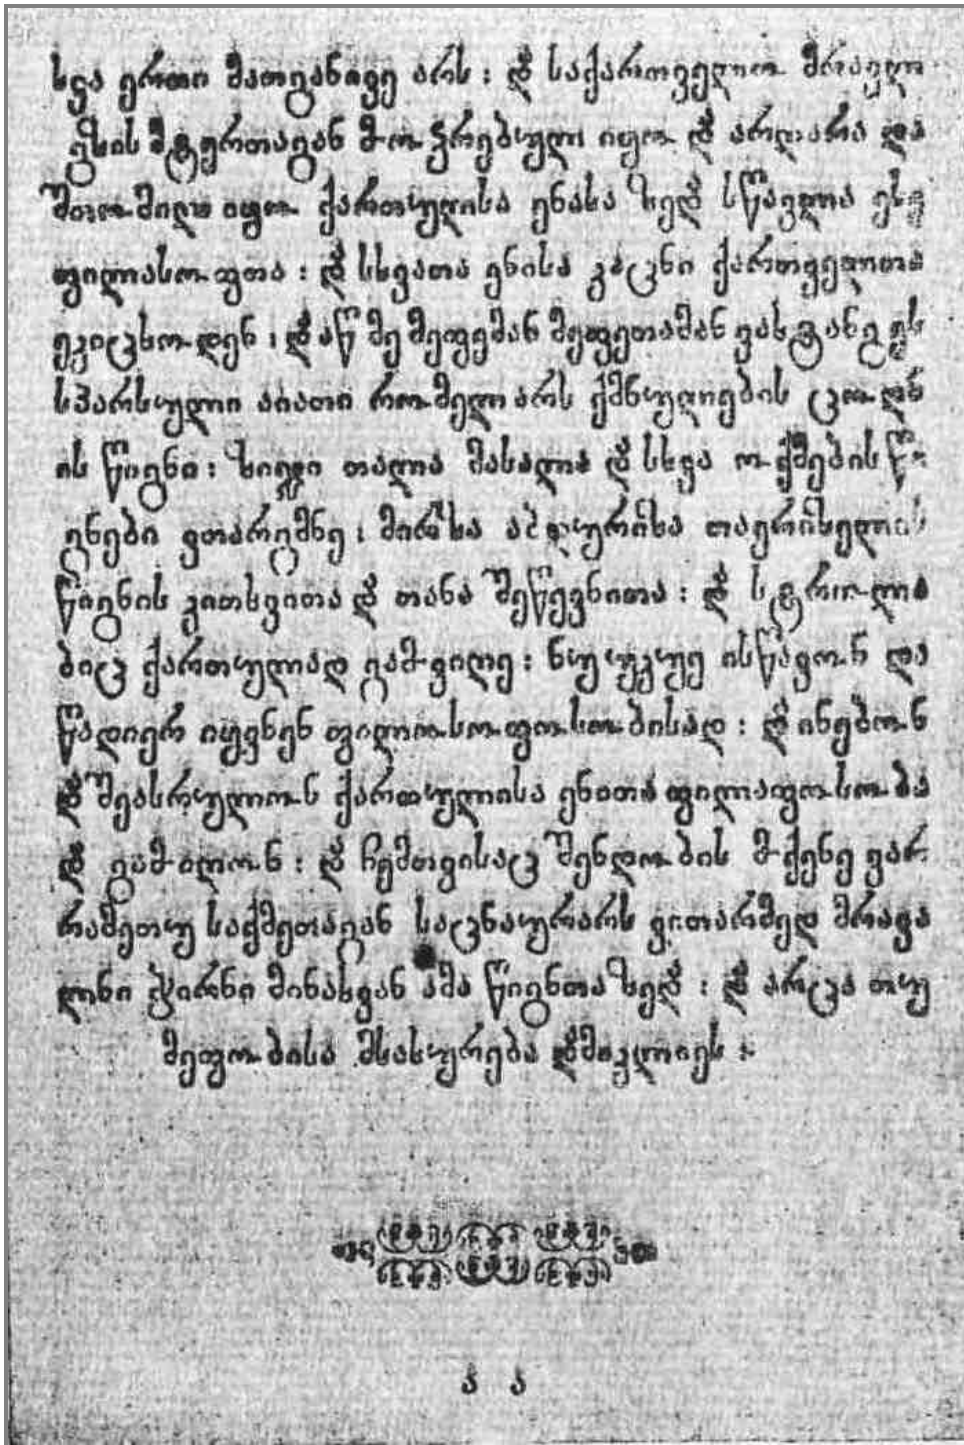 სჯა ერთი მათგანივე არს : და საქართველო მრავლი
გზის მტერთაგან მოჴრებული იყო და არღარა და
შთომილი იყო ქართულისა ენასა ზედა სწავლა ესე
ფილასოფთა : და სხვათა ენისა კაცნი ქართველთა
ეკიცხოდენ : და აწ მე მეფემან მეფეთამან ვახტანგ ეს
სპარსული აიათი რომელ არს ქმნულების ცოდნ
ის წიგნი : ზიჯი თალა მასალა და სხვა
გნები ვთარგმნე : მირზა აბდურიზა თავრიზელის
წიგნის კითხვითა და თანა შეწევნითა : და სტროლა
ბიც ქართულად გამოვიღე : ნუ უკუე ისწავონ და
წადიერ იყვნენ ფილოსოფოსობისად : და ინებონ
და შეასრულონ ქართულისა ენითა ფილაფოსობა
და გამოიღონ : და ჩემთვისაც შენდობის მოქენე ვარ
რამეთუ საქმეთაგან საცნაურ არს ვითარმედ მრავა
ლნი ჭირნი მინახვან ამა წიგნთა ზედა : და არცა თუ
მეფობისა მსახურება დამიკლიეს :
ა ა